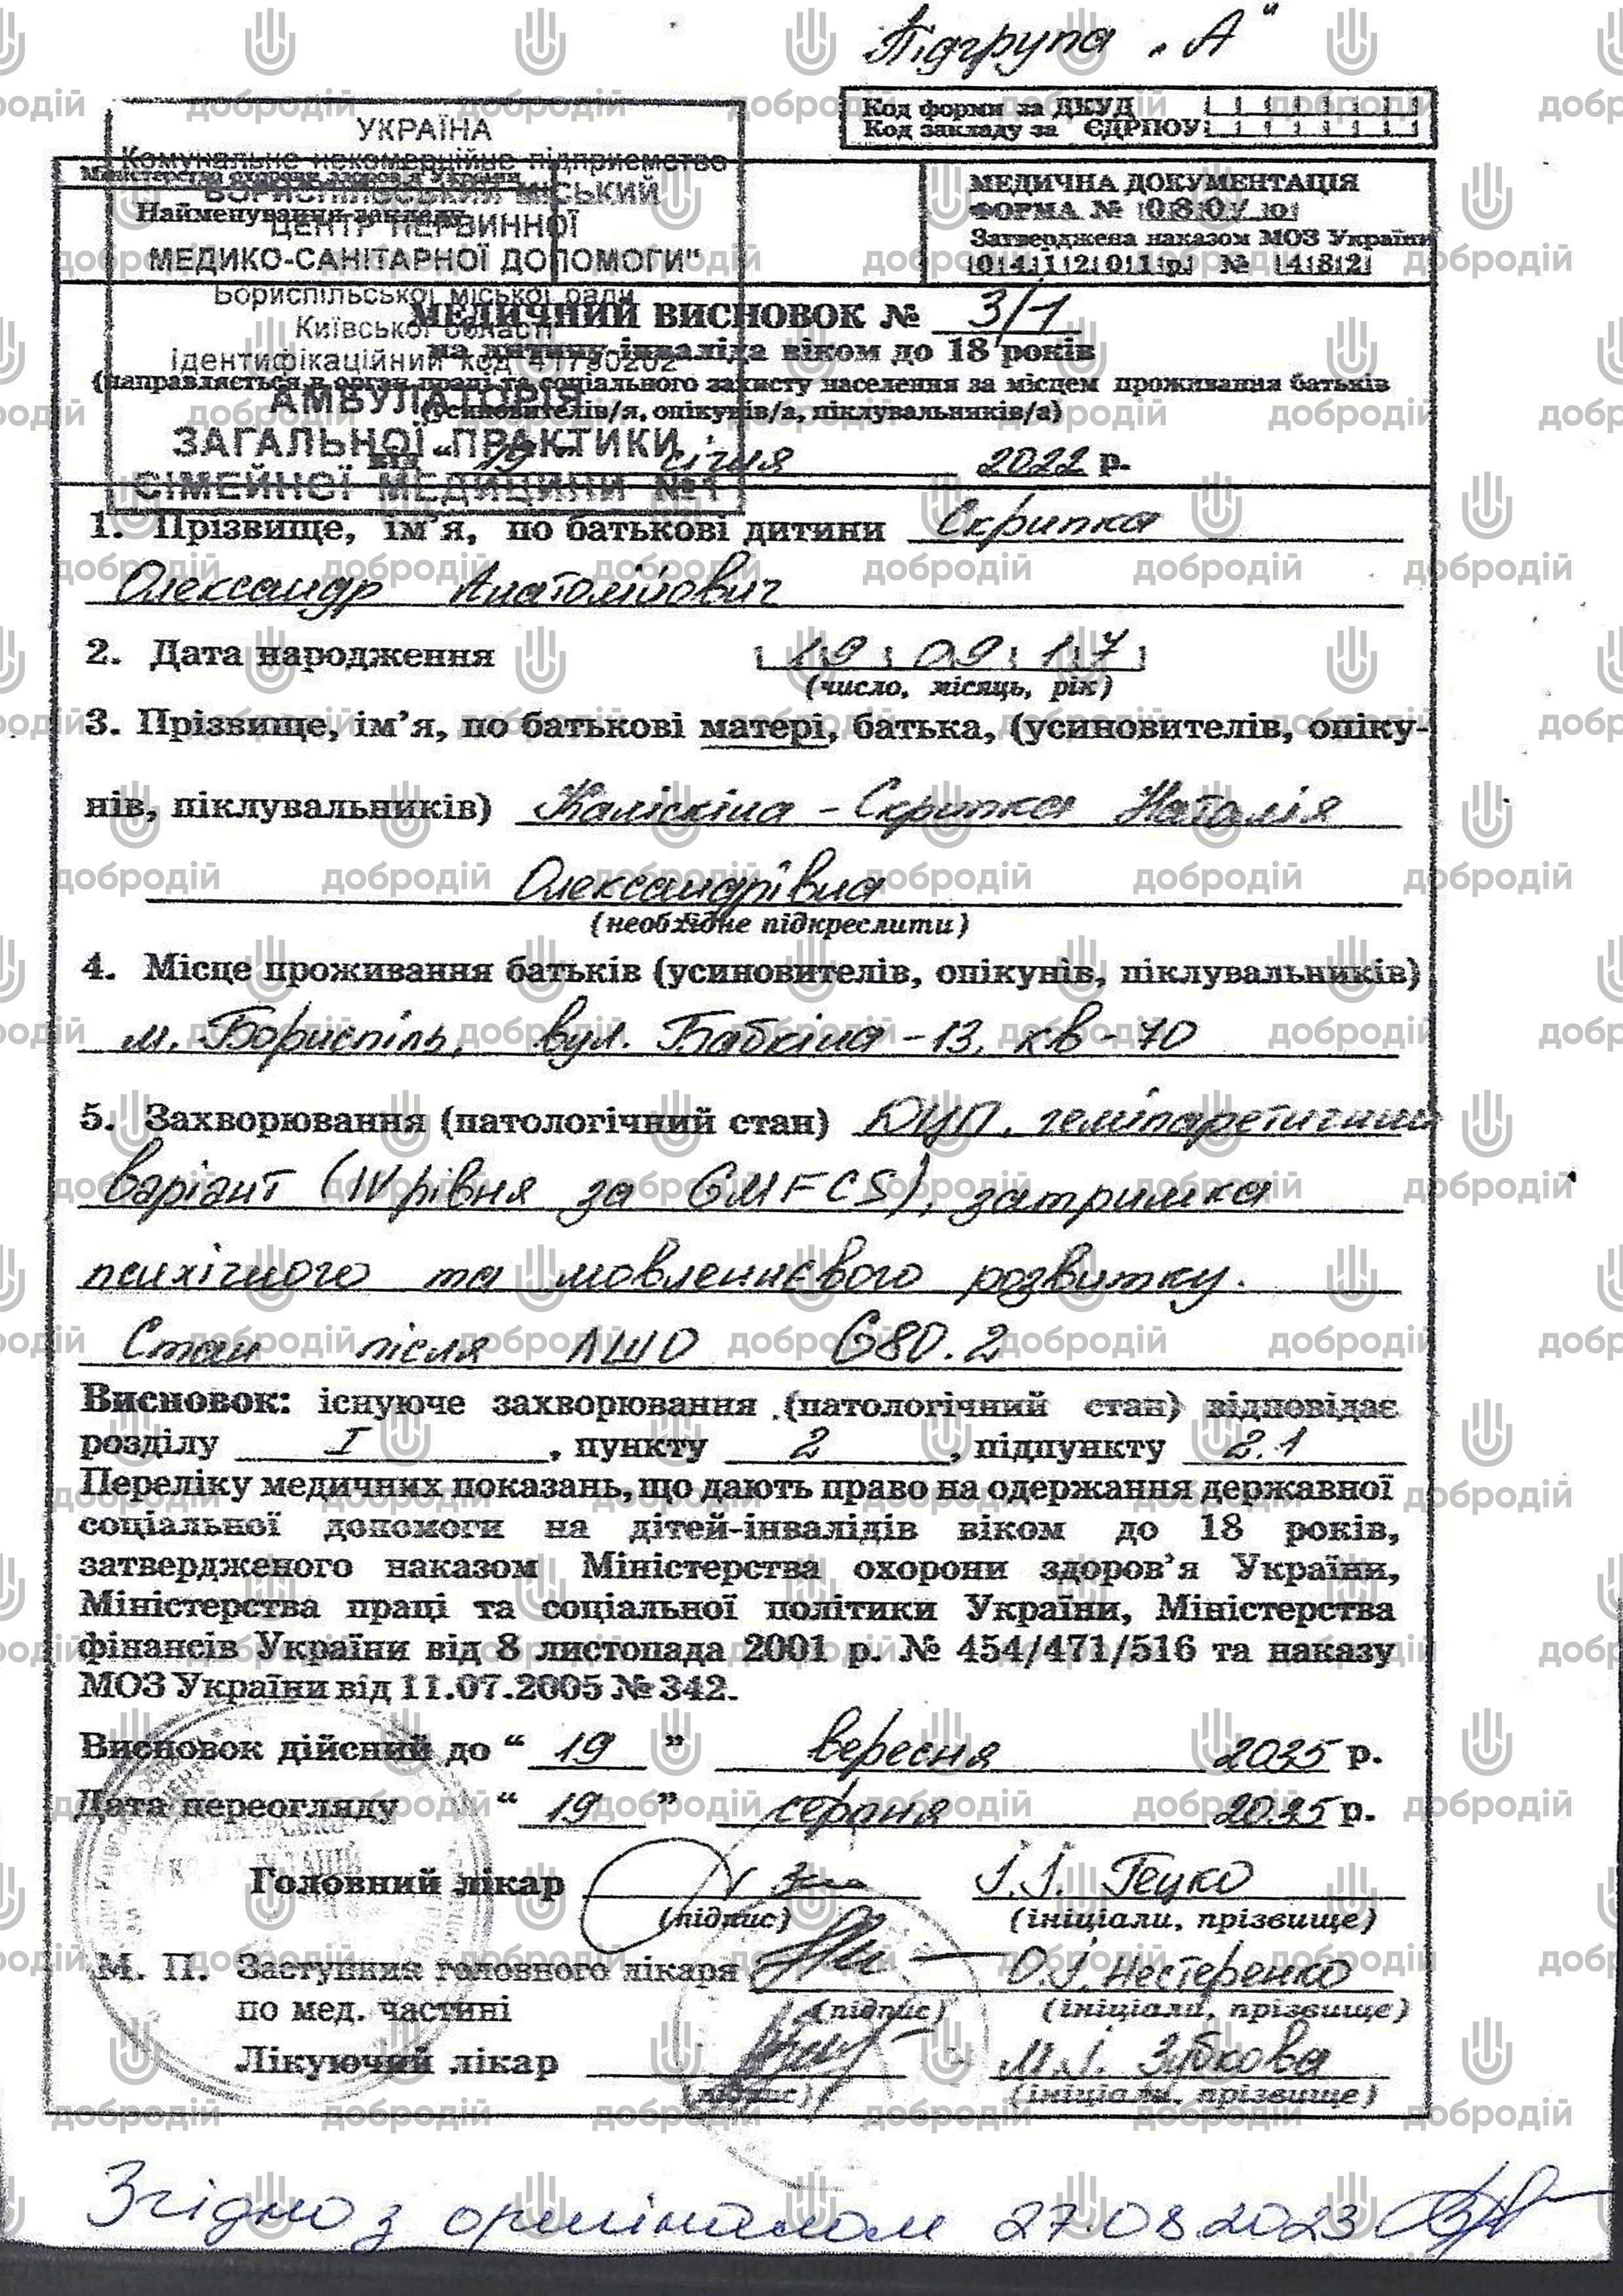 Підгрупа „А"
Код форми за ДКУД
Код закладу за ЄДРПОУ
УКРАЇНА
Комунальне некомерційне підприємство
Міністерство охорони здоров'я України
БОРИСПІЛЬСЬКИЙ МІСЬКИЙ
Найменування закладу
ЦЕНТР ПЕРВИННОЇ
МЕДИКО-САНІТАРНОЇ ДОПОМОГИ"
Бориспільської міської ради
Київської області
Ідентифікаційний код 41790202
АМБУЛАТОРІЯ
ЗАГАЛЬНОЇ ПРАКТИКИ
СІМЕЙНОЇ МЕДИЦИНИ №1
МЕДИЧНА ДОКУМЕНТАЦІЯ
ФОРМА № 080/о
Затверджена наказом МОЗ України
04.12.01р. № 482
МЕДИЧНИЙ ВИСНОВОК № 3/1
на дитину-інваліда віком до 18 років
(направляється в орган праці та соціального захисту населення за місцем проживання батьків
(усиновителів/я, опікунів/а, піклувальників/а)
від “ 19 ” січня 2022 р.
1. Прізвище, ім’я, по батькові дитини Скрипка
Олександр Анатолійович
2. Дата народження 19 09 17
(число, місяць, рік)
3. Прізвище, ім’я, по батькові матері, батька, (усиновителів, опіку-
нів, піклувальників) Каліскіна - Скрипка Наталія
Олександрівна
(необхідне підкреслити)
4. Місце проживання батьків (усиновителів, опікунів, піклувальників)
м. Бориспіль, вул. Бабкіна - 13, кв - 70
5. Захворювання (патологічний стан) ДЦП, геміпаретичний
варіант (IV рівня за GMFCS), затримка
психічного та мовленнєвого розвитку.
Стан після ЛШО G80.2
Висновок: існуюче захворювання (патологічний стан) відповідає
розділу I , пункту 2 , підпункту 2.1
Переліку медичних показань, що дають право на одержання державної
соціальної допомоги на дітей-інвалідів віком до 18 років,
затвердженого наказом Міністерства охорони здоров’я України,
Міністерства праці та соціальної політики України, Міністерства
фінансів України від 8 листопада 2001 р. № 454/471/516 та наказу
МОЗ України від 11.07.2005 № 342.
Висновок дійсний до “ 19 ” вересня 2035 р.
Дата переогляду “ 19 ” серпня 2035 р.
Головний лікар І.І. Гецко
(підпис) (ініціали, прізвище)
М. П. Заступник головного лікаря О.І. Нестеренко
по мед. частині (підпис) (ініціали, прізвище)
Лікуючий лікар М.І. Зубкова
(підпис) (ініціали, прізвище)
Згідно з оригіналом 27.08.2023
добродій